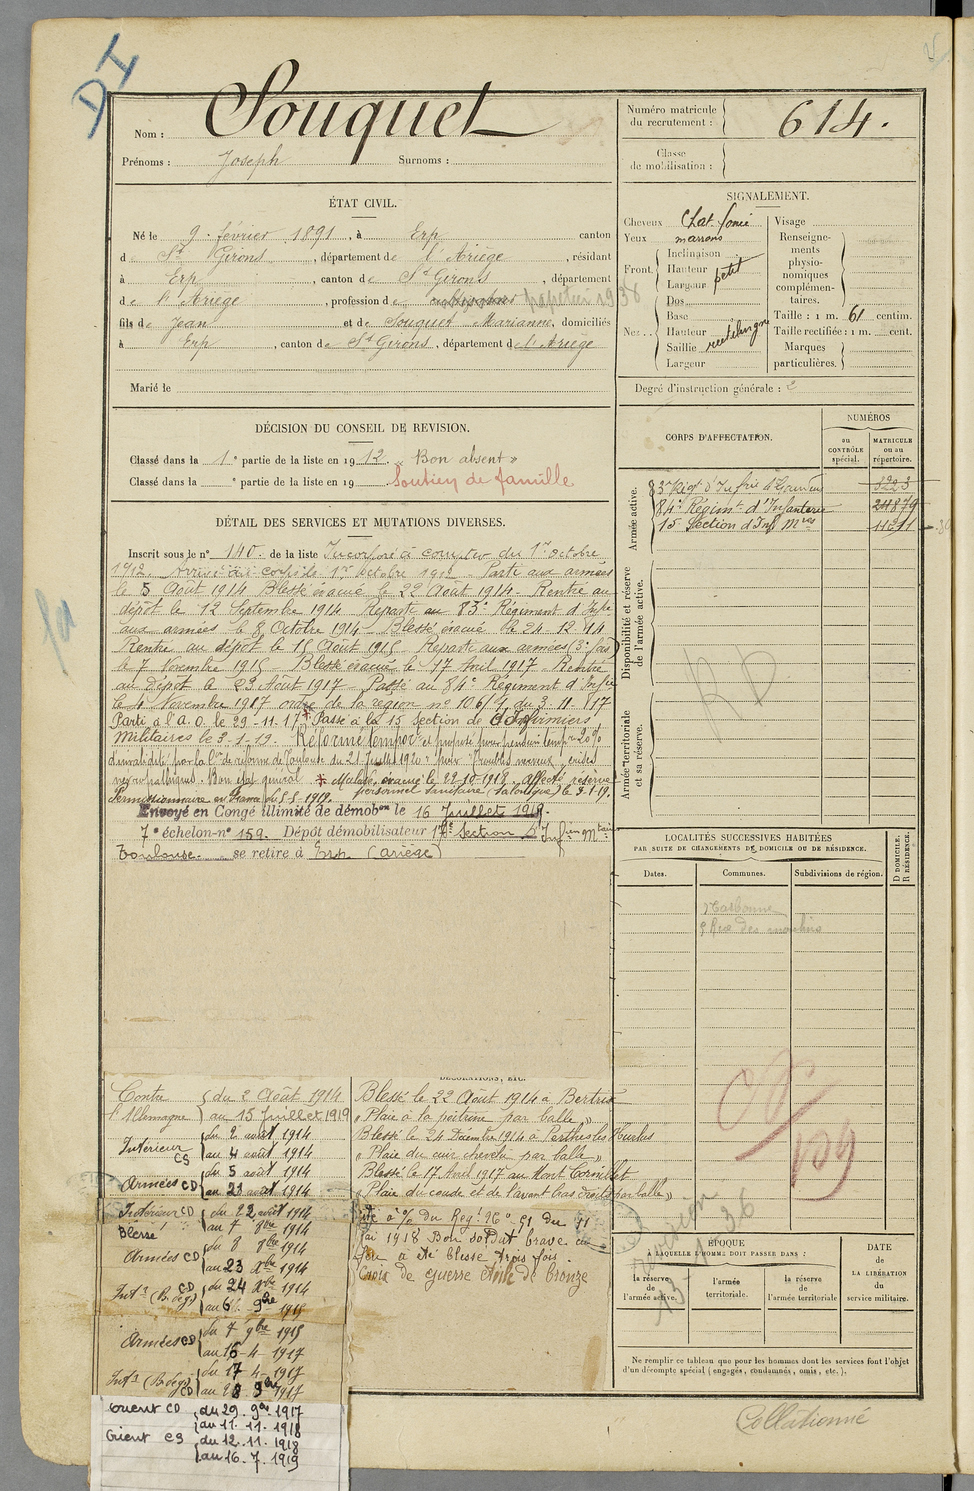 DI
Nom : Souquet
Prénoms : Joseph Surnoms :
ÉTAT CIVIL.
Né le 9 février 1891, à Erp canton
de St Girons, département de l'Ariège, résidant
à Erp, canton de St Girons, département
de l'Ariège, profession de papetier 1938
fils de Jean et de Souquet Marianne, domiciliés
à Erp, canton de St Girons, département de l'Ariège
Marié le
DÉCISION DU CONSEIL DE REVISION.
Classé dans la 1e partie de la liste en 1912. « Bon absent »
Classé dans la e partie de la liste en 19 Soutien de famille
DÉTAIL DES SERVICES ET MUTATIONS DIVERSES.
Inscrit sous le n° 140. de la liste Incorporé à compter du 1er octobre
1912. Arrivé au corps le 1er octobre 1912 Parti aux armées
le 5 Août 1914 Blessé évacué le 22 Août 1914. Rentré au
dépôt le 12 Septembre 1914 Reparti au 83e Régiment d'Infie
aux armées le 8 Octobre 1914 Blessé évacué le 24-12-14
Rentré au dépôt le 15 Août 1915 Reparti aux armées (3e fois)
le 7 Novembre 1915 Blessé évacué le 17 Avril 1917 Rentré
au Dépôt le 23 Août 1917 Passé au 84e Régiment d'Infie
le 4 Novembre 1917 ordre de la région no 106/7 du 3-11-17
Parti à l'A.O. le 29-11-17 * Passé à la 15 Section de Infirmiers
Militaires le 3-1-19. Réformé tempore et proposé pour pension tempre 20%
d'invalidité par la Con de réforme de Toulouse du 21 1920 pour Troubles nerveux, crises
Bon état général * Malade, évacué le 22-10-1918. affecté réserve
personnel sanitaire (Salonique) le 3-1-19.
Permissionnaire en France du 5-5-1919.
Envoyé en Congé illimité de démobon le 16 Juillet 1919.
7e échelon n° 159. Dépôt démobilisateur 17e Section d'Infiers Mres
Toulouse. se retire à Erp (Ariège)
Contre l'Allemagne { du 2 Août 1914
au 15 Juillet 1919
Intérieur CS { du 2 août 1914
au 4 août 1914
Armées CD { du 5 août 1914
au 21 août 1914
Intérieur CD Blessé { du 22 août 1914
au 7 8bre 1914
Armées CD { du 8 8bre 1914
au 23 Xbre 1914
Intr (B. deg) CD { du 24 Xbre 1914
au 6 9bre 1915
Armées CD { du 7 9bre 1915
au 16-4-1917
Intr (B. deg) CD { du 17-4-1917
au 28 9bre 1917
Orient CD du 29. 9bre. 1917
au 11. 11. 1918
Orient CS du 12. 11. 1918
au 16. 7. 1919
DÉCORATIONS, ETC.
Blessé le 22 Août 1914 à Bertrix
« Plaie à la poitrine par balle »
Blessé le 24 Décembre 1914 à Perthes les Hurlus
« Plaie du cuir chevelu par balle »
Blessé le 17 Avril 1917 au Mont Cornillet
« Plaie du coude et de l'avant bras droits par balle »
Cité à l'O/ du Regt No 91 du 11
Mai 1918 Bon soldat brave au
feu a été blessé trois fois
Croix de guerre étoile de bronze
Numéro matricule du recrutement : 614.
Classe de mobilisation :
SIGNALEMENT.
Cheveux Chat. foncé
Yeux marrons
Front. Inclinaison
Hauteur
Largeur petit
Nez. Dos
Base
Hauteur
Saillie rectiligne
Largeur
Visage
Renseignements physionomiques complémentaires.
Taille : 1 m. 61 centim.
Taille rectifiée : 1 m. cent.
Marques particulières.
Degré d'instruction générale : 2
CORPS D'AFFECTATION.
NUMÉROS
au CONTRÔLE spécial.
MATRICULE ou au répertoire.
Armée active.
83e Régt d'Infie 3223
84e Régimt d'Infanterie 24879
15 Section d'Inf Mres 11211
Disponibilité et réserve de l'armée active.
Armée territoriale et sa réserve.
LOCALITÉS SUCCESSIVES HABITÉES
PAR SUITE DE CHANGEMENTS DE DOMICILE OU DE RÉSIDENCE.
Dates. Communes. Subdivisions de région. D DOMICILE. R RÉSIDENCE.
Narbonne
9 Rue des moulins
ÉPOQUE
À LAQUELLE L'HOMME DOIT PASSER DANS :
la réserve de l'armée active.
l'armée territoriale.
la réserve de l'armée territoriale
DATE de LA LIBÉRATION du service militaire.
Ne remplir ce tableau que pour les hommes dont les services font l'objet
d'un décompte spécial (engagés, condamnés, omis, etc.).
Collationné